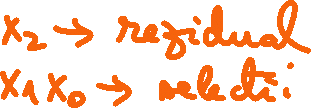 x₂ → rezidual
x₁ x₀ → selectii